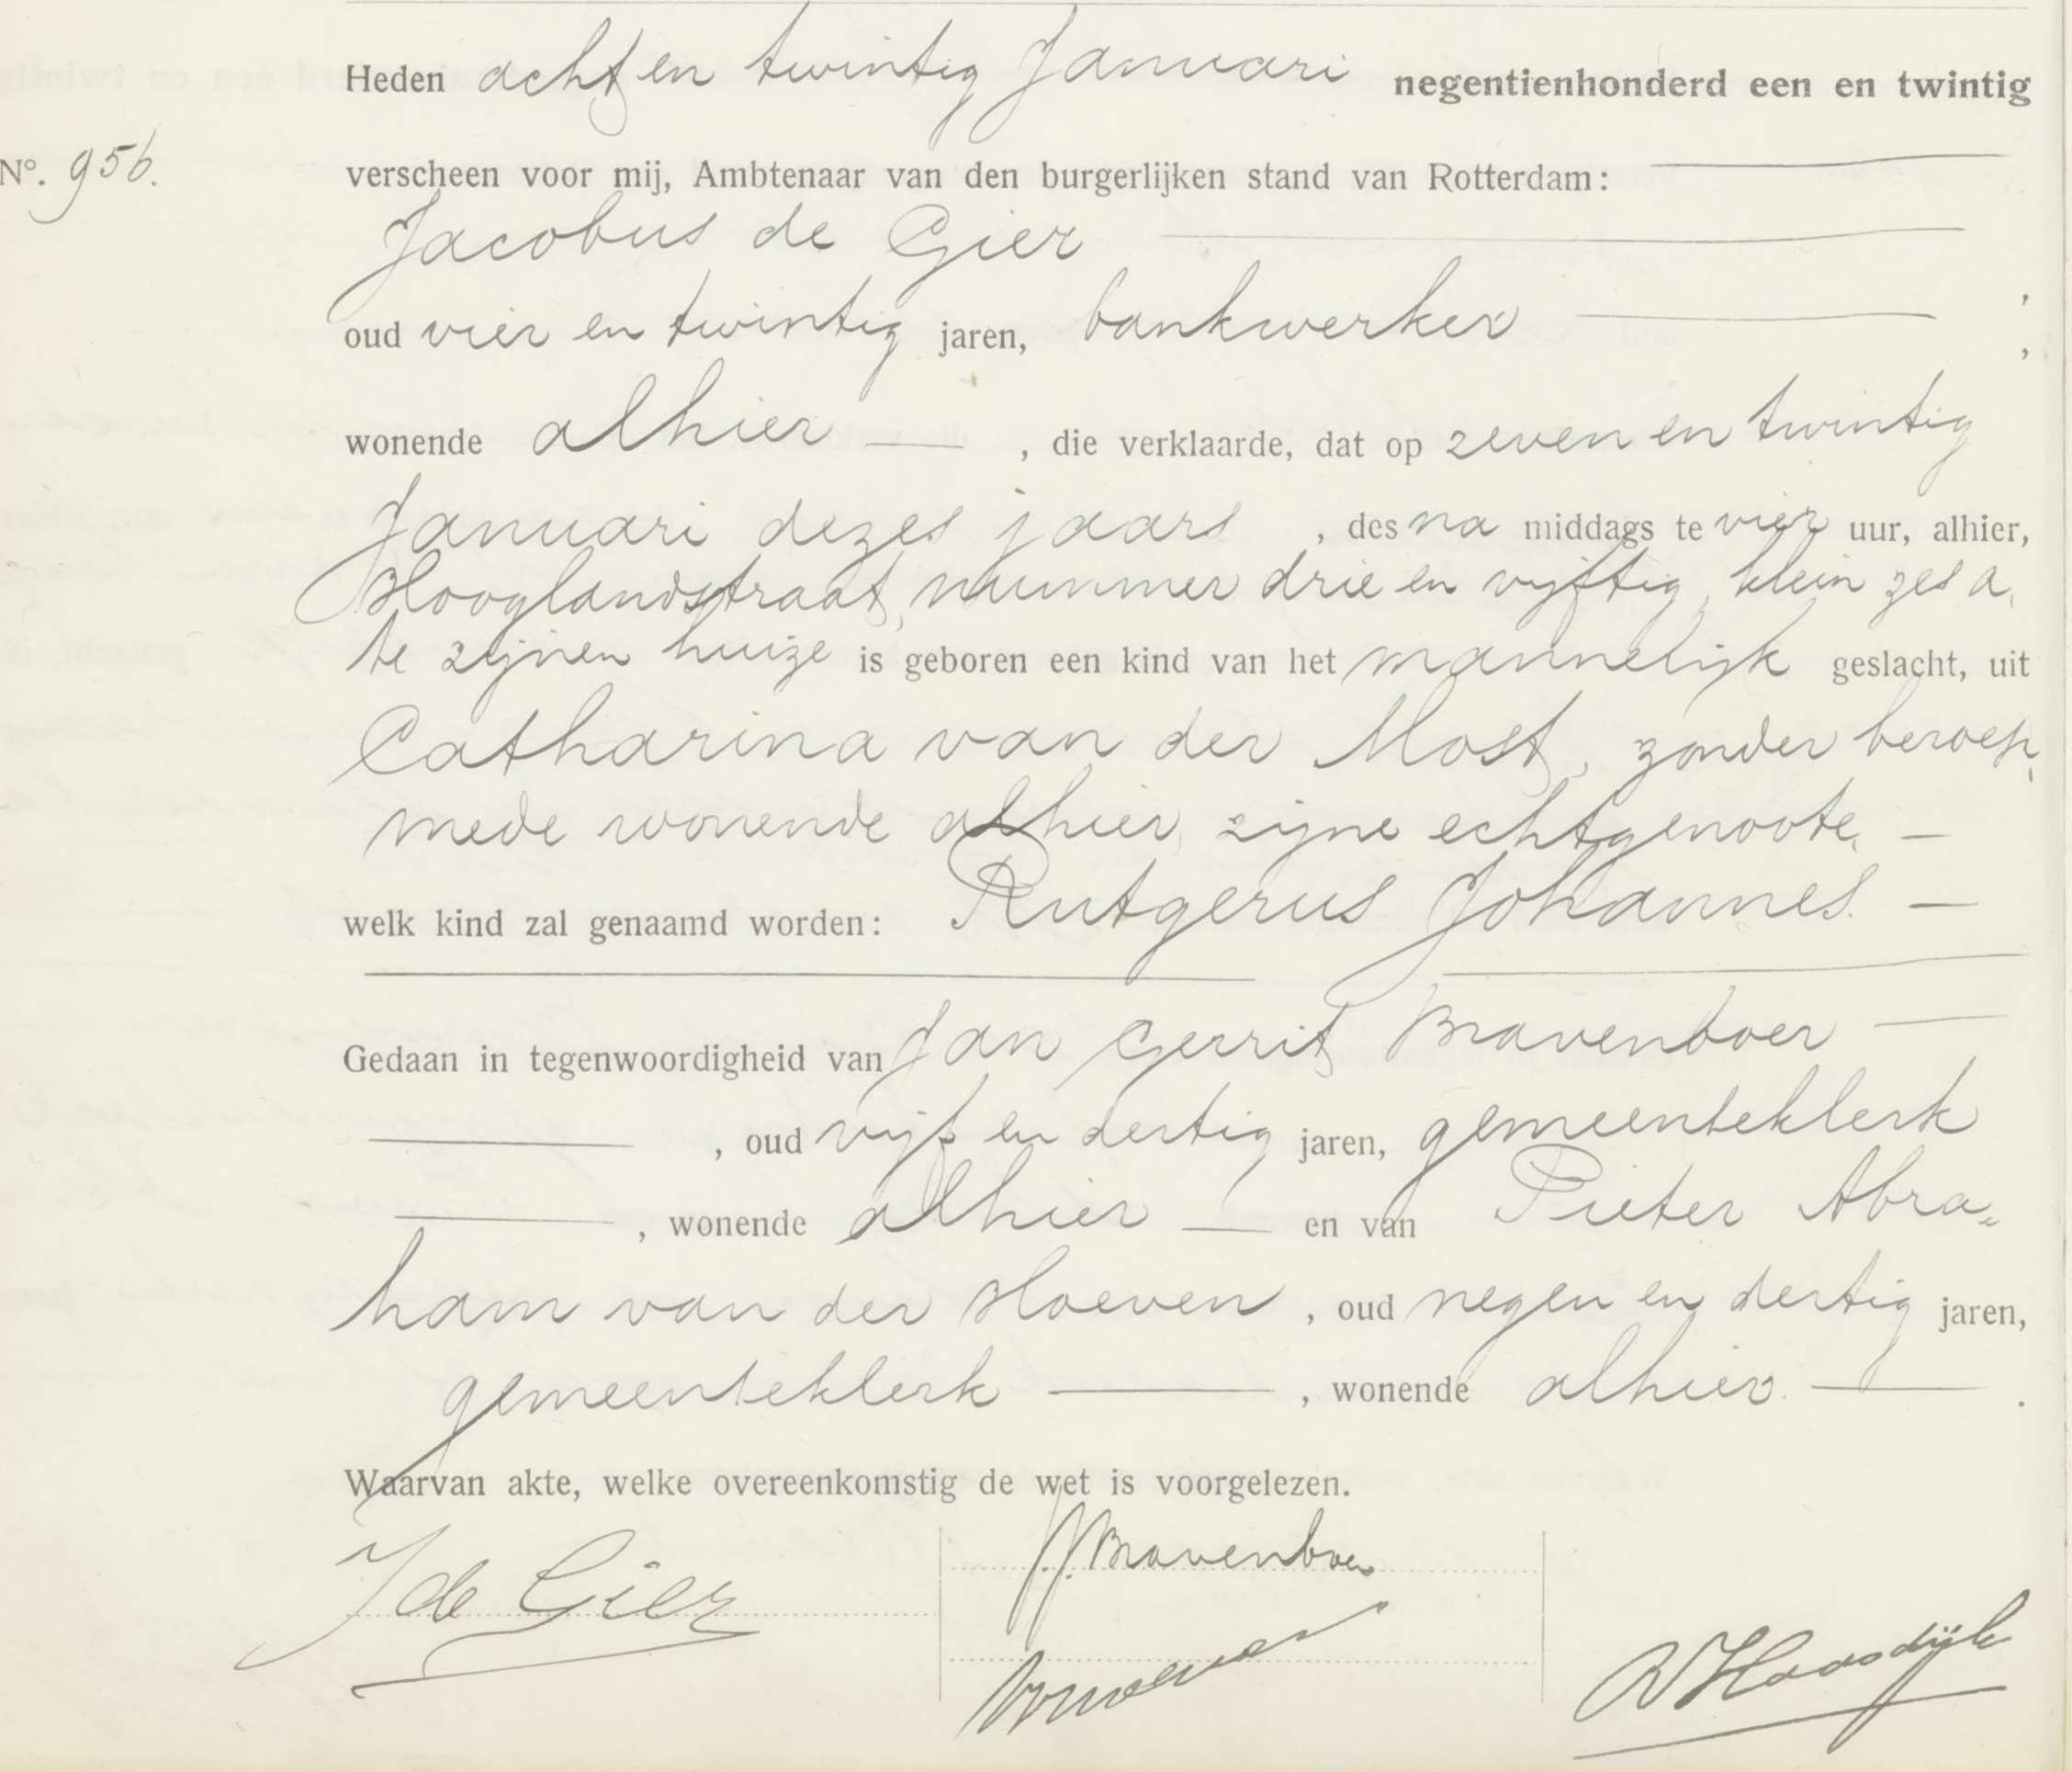 Heden acht en twintig Januari negentienhonderd een en twintig
N°. 956.
verscheen voor mij, Ambtenaar van den burgerlijken stand van Rotterdam:
Jacobus de Gier
oud vier en twintig jaren, bankwerker,
wonende alhier, die verklaarde, dat op zeven en twintig
Januari dezes jaars, des na middags te vier uur, alhier,
Hooglandstraat, nummer drie en vijftig, klein zes a,
te zijnen huize is geboren een kind van het mannelijk geslacht, uit
Catharina van der Most, zonder beroep,
mede wonende alhier, zijne echtgenoote,
welk kind zal genaamd worden: Rutgerus Johannes.
Gedaan in tegenwoordigheid van Jan Gerrit Bravenboer
, oud vijf en dertig jaren, gemeenteklerk
, wonende alhier en van Pieter Abra=
ham van der Hoeven, oud negen en dertig jaren,
gemeenteklerk, wonende alhier.
Waarvan akte, welke overeenkomstig de wet is voorgelezen.
J de Gier
Bravenboer
Haasdijk